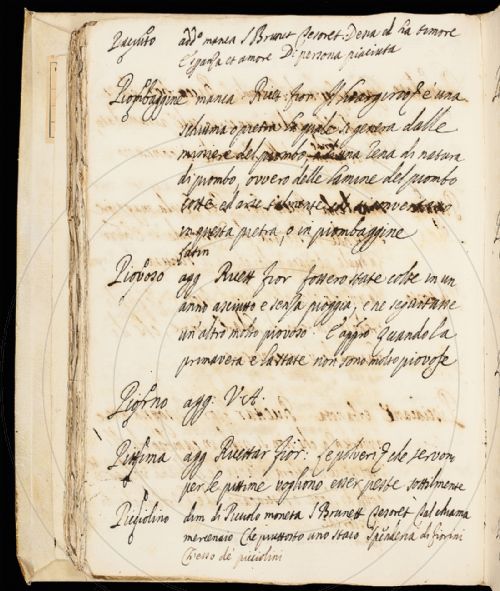 Piaciuto add.º manca S Brunet Tesoret. Dena al tra timore
Esparsa et amore Di persona piaciuta
Piombaggine manca Ricett: fior: è una
schiuma o pietra la quale si genera dalle
miniere del piombo una vena di natura
di piombo, ovvero delle lamine del piombo
cotte ed arse
in questa pietra, o in piombaggine
Piovoso agg Ricett fior fossero state colte in un
anno asciutto e senza pioggia, e ne seguitasse
un altro molto piovoso E appº Quando la
primavera e la state non sono molto piovose
agg. V A.
Pittima agg Ricettar fior: le polveri che servon
per le pittime vogliono esser peste sottilmente
Picciolino dim di Picciolo moneta S Brunett Tesoret Tal chiama
mercennaio Che piuttosto uno staio Spenderia di fiorini
Chesso de picciolini